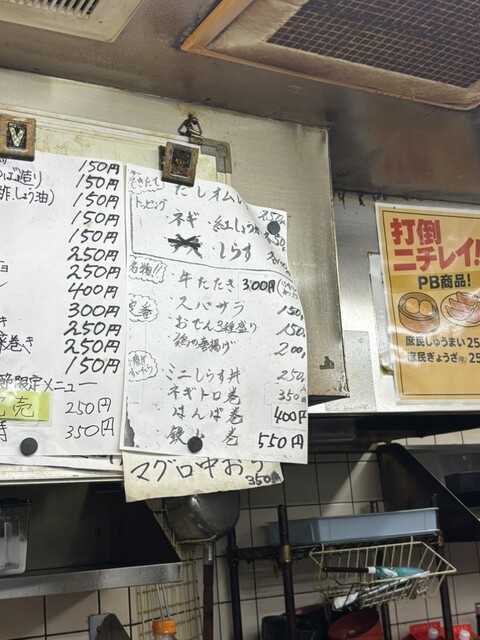 150円
150円
150円
150円
150円
250円
250円
400円
300円
250円
250円
150円
限定メニュー
売
250円
350円
できたて
だしオム
トッピング
ネギ・紅しょうが
しらす
名物!!
牛たたき 300円
定番
スパサラ 150
おでん3種盛り 150
鶏の唐揚げ 200
ミニしらす丼 250
ネギトロ巻 350
はんぱ巻 400円
巻 550円
マグロ中おち
350円
打倒
ニチレイ!
PB商品!
庶民しゅうまい
庶民ぎょうざ